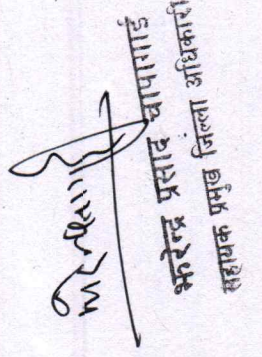 प्रसाद चापागाई
सहायक प्रमुख जिल्ला अधिकारी